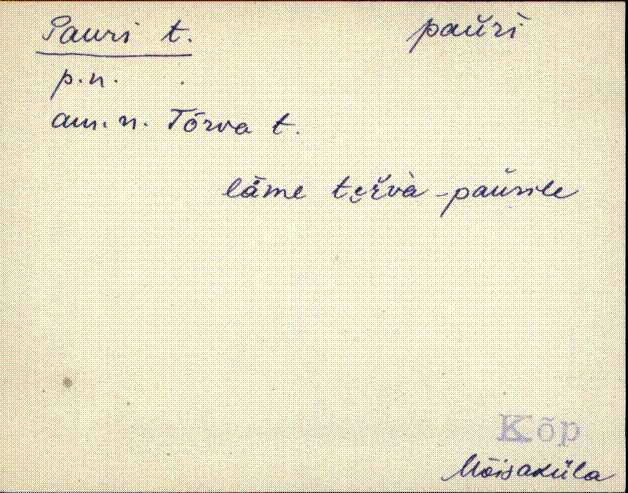 Pauri t. paŭrì
p.n.
am.n. Tõrva t.
lǟme te̮ŕvà-paŭrile
Kõp
Mõisaküla